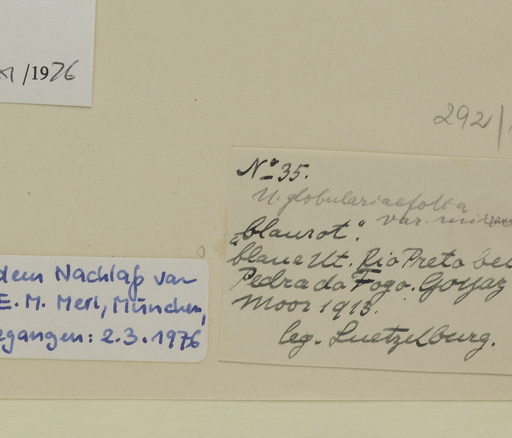 XI/1976
292/
No 35.
U. globulariaefolia
var.
"blaurot".
blaue Ut. Rio Preto bei
Pedra do Fogo. Goyaz
Moor 1913.
leg. Luetzelburg.
dem Nachlaß von
E. M. Merl, München,
egangen: 2.3.1976